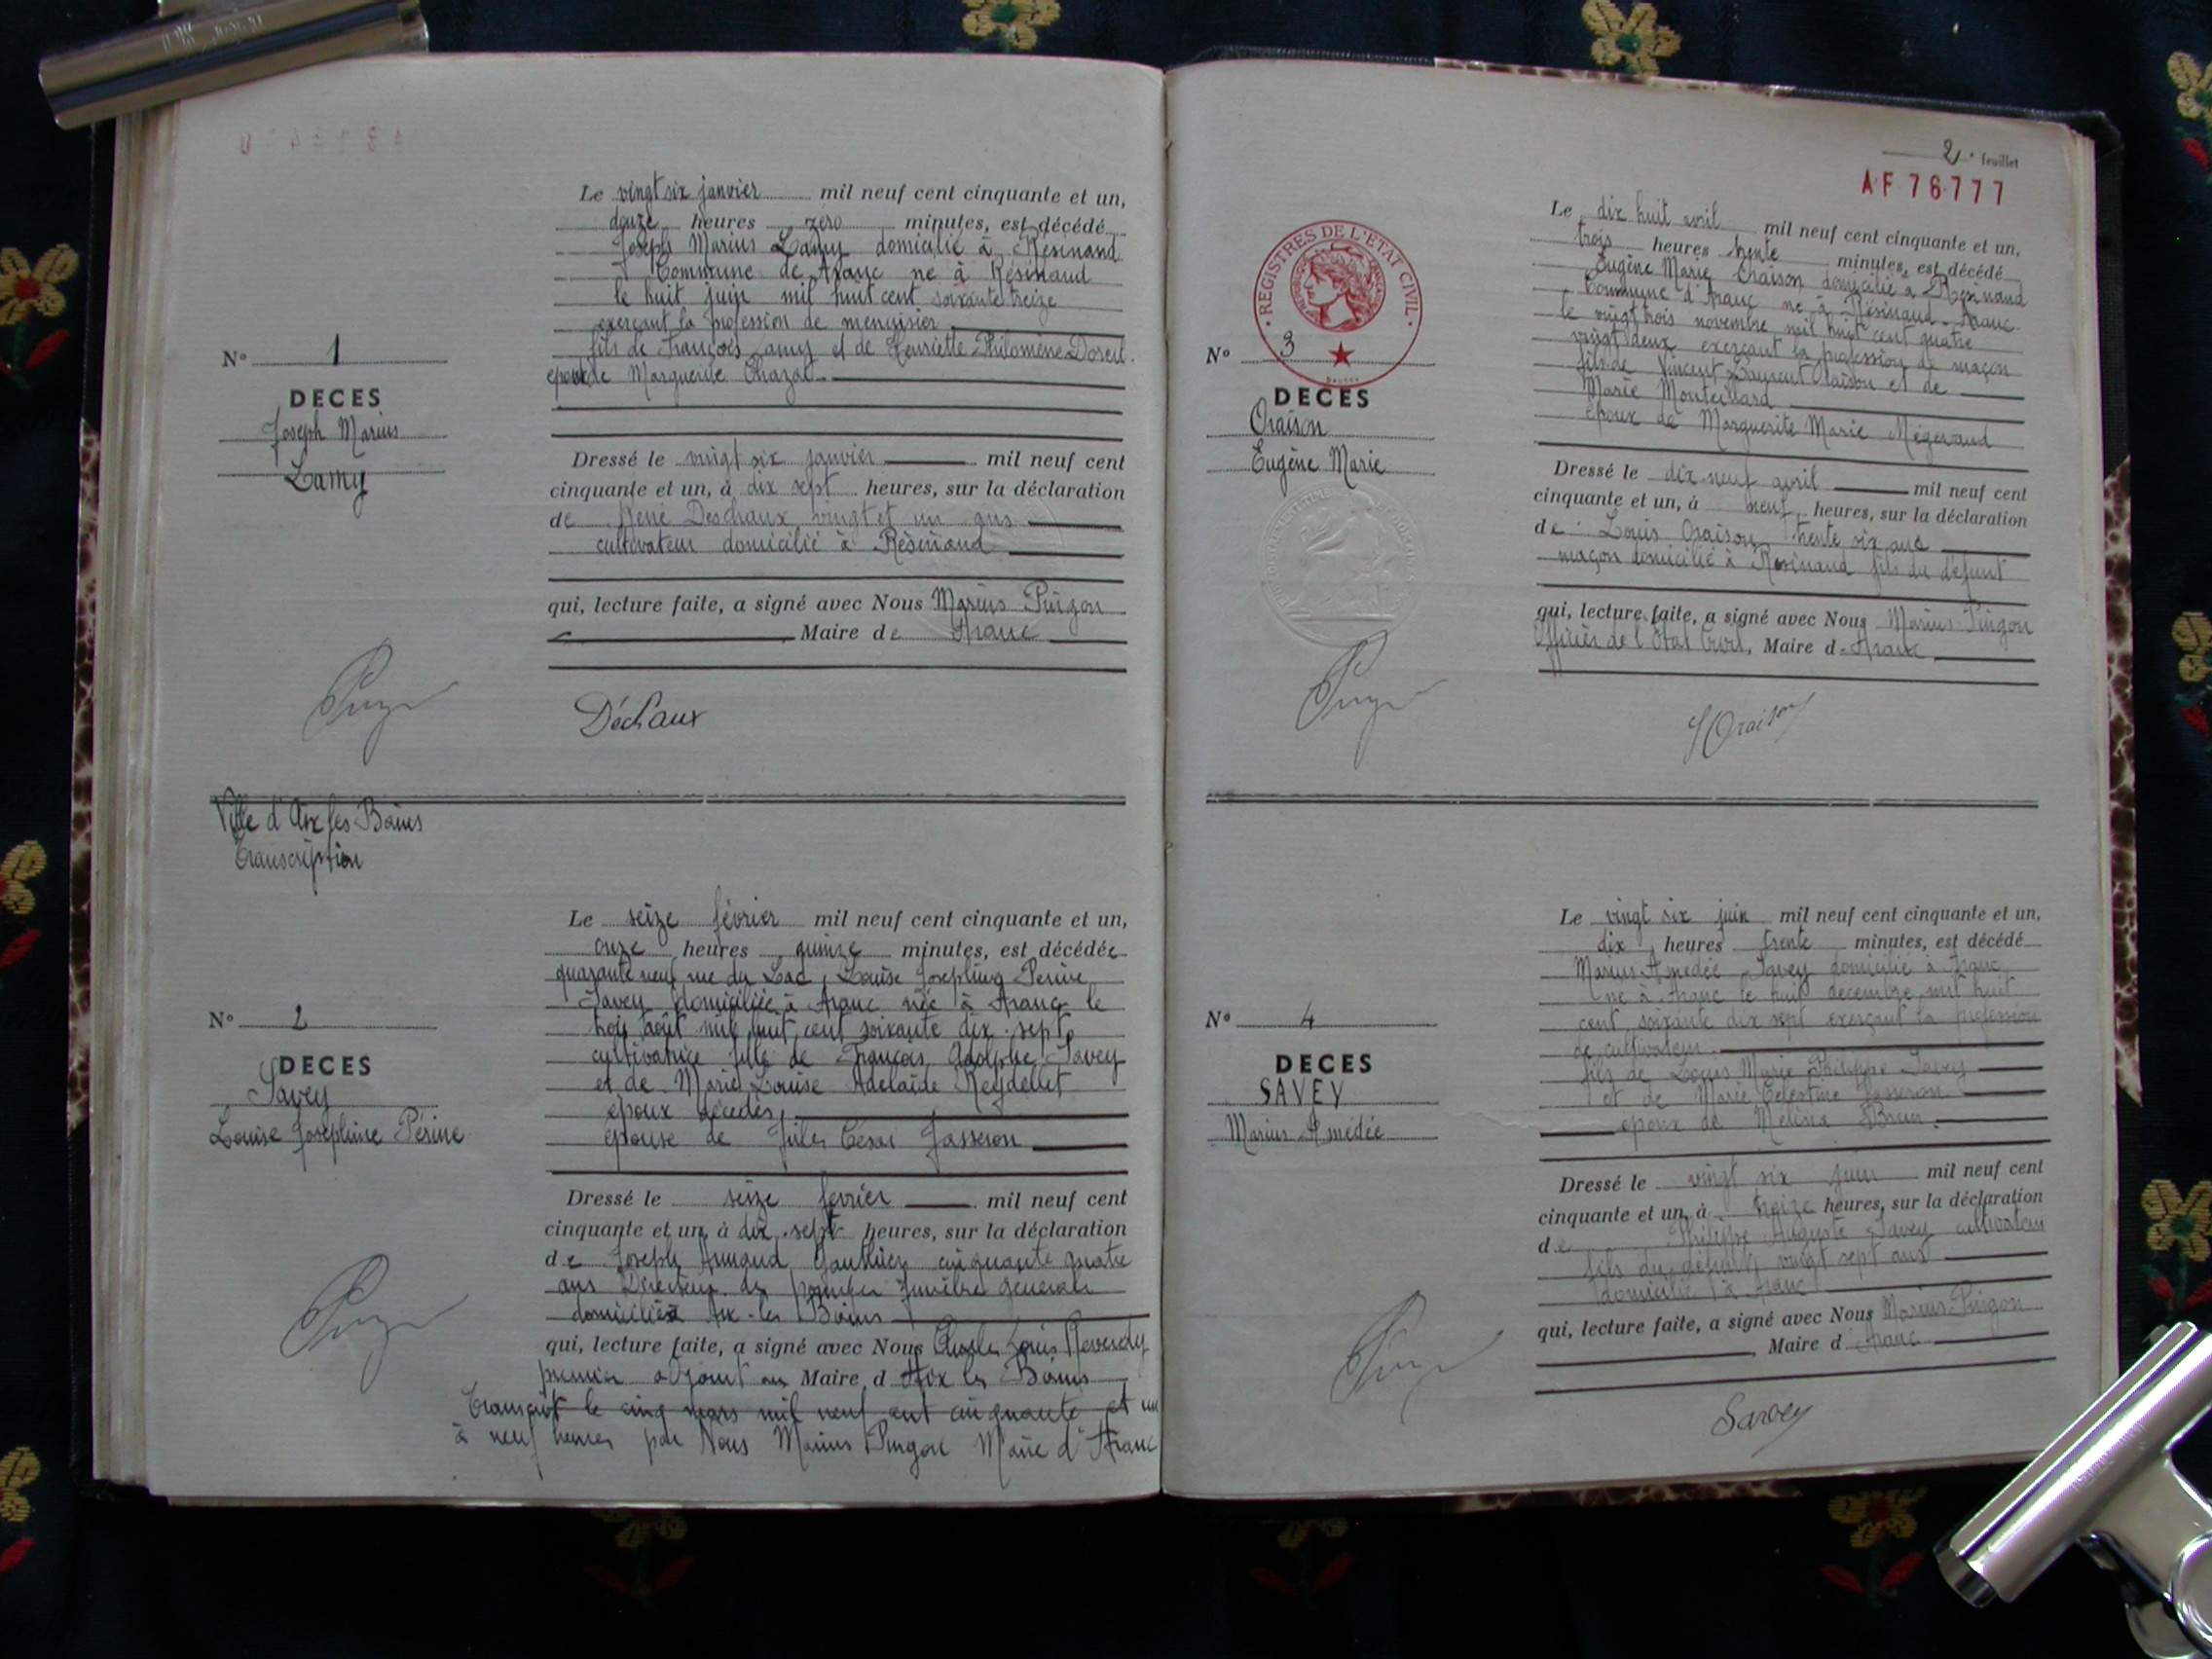 Le vingt six janvier mil neuf cent cinquante et un,
douze heures zéro minutes, est décédé
Joseph Marius Lamy domicilié à Résinand
Commune de Aranc né à Résinand
le huit juin mil huit cent soixante treize
exerçant la profession de menuisier
fils de François Lamy et de Henriette Philomène
époux de Marguerite Chazal
N° 1
DECES
Joseph Marius
Lamy
Dressé le vingt six janvier mil neuf cent
cinquante et un, à dix sept heures, sur la déclaration
de René Deschaux vingt et un ans
cultivateur domicilié à Résinand
qui, lecture faite, a signé avec Nous Marius Pingon
Maire de Aranc
Déchaux
Ville d'Aix les Bains
Transcription
Le seize février mil neuf cent cinquante et un,
onze heures quinze minutes, est décédée
quarante neuf rue du Lac, Louise Joséphine Périne
Savey domiciliée à Aranc née à Aranc le
trois août mil huit cent soixante dix-sept
cultivatrice fille de François Adolphe Savey
et de Marie Louise Adelaïde Reydellet
époux décédés,
épouse de Jules César Jasseron
N° 2
DECES
Savey
Louise Joséphine Périne
Dressé le seize fevrier mil neuf cent
cinquante et un, à dix-sept heures, sur la déclaration
de Joseph Armand Gauthier cinquante quatre
ans Directeur des pompes funèbres générales
domicilié à Aix-les Bains
qui, lecture faite, a signé avec Nous Charles Louis
premier adjoint au Maire d Aix les Bains
Transcrit le cinq mars mil neuf cent cinquante et un
à neuf heures par Nous Marius Pingon Maire d'Aranc
2e feuillet
AF 76777
REGISTRES DE L'ETAT CIVIL
Le dix huit avril mil neuf cent cinquante et un,
trois heures trente minutes, est décédé
Eugène Marie Oraison domicilié à Résinand
Commune d'Aranc né à Résinand-Aranc
le vingt trois novembre mil huit cent quatre
vingt deux exerçant la profession de maçon
fils de Vincent Laurent Oraison et de
Marie Monteillard
époux de Marguerite Marie Mégevand
N° 3
DECES
Oraison
Eugène Marie
Dressé le dix neuf avril mil neuf cent
cinquante et un, à neuf heures, sur la déclaration
de Louis Oraison, trente six ans
maçon domicilié à Résinand fils du défunt
qui, lecture faite, a signé avec Nous Marius Pingon
Officier de l'Etat Civil, Maire d Aranc
Oraison
Le vingt six juin mil neuf cent cinquante et un,
dix heures trente minutes, est décédé
Marius Amédée Savey domicilié à Aranc
né à Aranc le huit décembre mil huit
cent soixante dix sept exerçant la profession
de cultivateur
fils de Louis Marie Philippe Savey
et de Marie Célestine Jasseron
époux de Mélina Brun
N° 4
DECES
SAVEY
Marius Amédée
Dressé le vingt six juin mil neuf cent
cinquante et un, à treize heures, sur la déclaration
de Philippe Auguste Savey cultivateur
fils du défunt, vingt sept ans
domicilié à Aranc
qui, lecture faite, a signé avec Nous Marius Pingon
Maire d Aranc
Savey